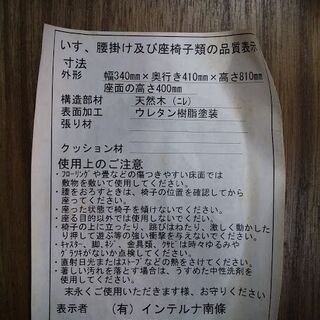 いす、腰掛け及び座椅子類の品質表示
寸法
外形 幅340mm×奥行き410mm×高さ810mm
座面の高さ400mm
構造部材 天然木(ﾆﾚ)
表面加工 ウレタン樹脂塗装
張り材
クッション材
使用上のご注意
・ﾌﾛｰﾘﾝｸﾞや畳などの傷つきやすい床面では
敷物を敷いて使用してください。
・腰をおろすときは、椅子の位置を確認してから
座ってください。
・座った状態で椅子を傾けないでください。
・座る目的以外では使用しないでください。
・椅子の上に立ったり、跳びはねたり、激しく動かした
り押して遊ぶ等の強い衝撃を与えないでください。
・ｷｬｽﾀｰ、脚、ﾈｼﾞ、金具類、ｸｻﾋﾞは時々ゆるみや
ｸﾞﾗﾂｷがないか点検してください。
・直射日光またはｽﾄｰﾌﾞなどの熱をさけてください。
・著しい汚れを落とす場合は、うすめた中性洗剤を
使用してください。
末永くご使用いただきます様、お守りください
表示者 (有)インテルナ南條